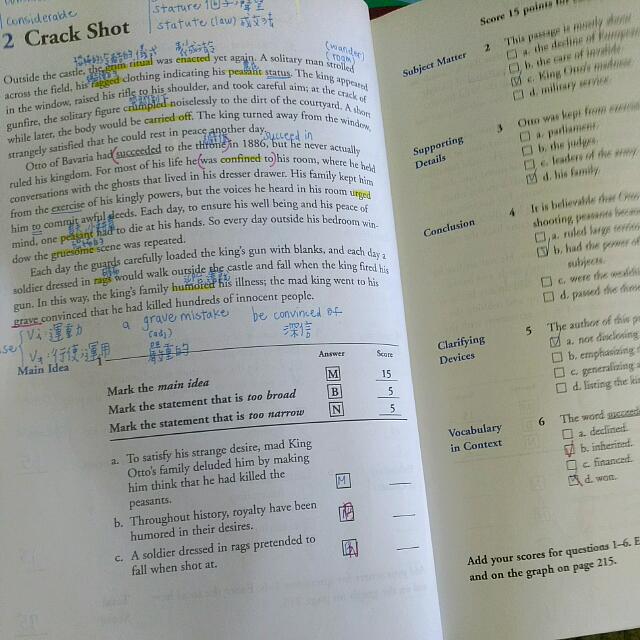 considerable
stature
statute (law)
2 Crack Shot
(wander)
(roam)
Outside the castle, the grim ritual was enacted yet again. A solitary man strolled
across the field, his ragged clothing indicating his peasant status. The king appeared
in the window, raised his rifle to his shoulder, and took careful aim; at the crack of
gunfire, the solitary figure crumpled noiselessly to the dirt of the courtyard. A short
while later, the body would be carried off. The king turned away from the window,
strangely satisfied that he could rest in peace another day.
succeed in
Otto of Bavaria had succeeded to the throne in 1886, but he never actually
ruled his kingdom. For most of his life he was confined to his room, where he held
conversations with the ghosts that lived in his dresser drawer. His family kept him
from the exercise of his kingly powers, but the voices he heard in his room urged
him to commit awful deeds. Each day, to ensure his well being and his peace of
mind, one peasant had to die at his hands. So every day outside his bedroom win-
dow the gruesome scene was repeated.
Each day the guards carefully loaded the king's gun with blanks, and each day a
soldier dressed in rags would walk outside the castle and fall when the king fired his
gun. In this way, the king's family humored his illness; the mad king went to his
grave convinced that he had killed hundreds of innocent people.
Vi. 運動 a grave mistake be convinced of
(adj) 深信
Main Idea 1
Answer Score
Mark the main idea M 15
Mark the statement that is too broad B 5
Mark the statement that is too narrow N 5
a. To satisfy his strange desire, mad King
Otto's family deluded him by making
him think that he had killed the
peasants. M
b. Throughout history, royalty have been
humored in their desires.
c. A soldier dressed in rags pretended to
fall when shot at.
Score 15 points for
Subject Matter 2 This passage is mostly about
a. the decline of European
b. the care of invalids.
c. King Otto's madness.
d. military service.
Supporting
Details
3 Otto was kept from exercising
a. parliament.
b. the judges.
c. leaders of the army.
d. his family.
Conclusion 4 It is believable that
shooting peasants because
a. ruled large
b. had the power of
subjects.
c. were the wealth
d. passed the time
Clarifying
Devices
5 The author of this
a. not disclosing
b. emphasizing
c. generalizing
d. listing the
Vocabulary
in Context
6 The word succeeded
a. declined.
b. inherited.
c. financed.
d. won.
Add your scores for questions 1–6.
and on the graph on page 215.